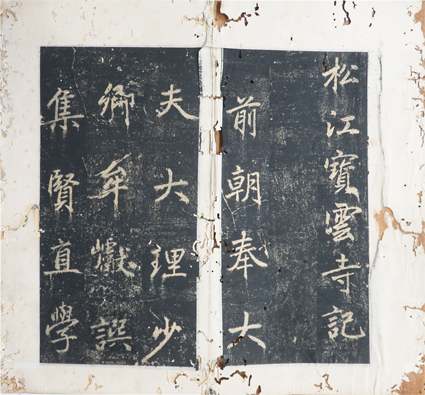 松江寶雲寺記
前朝奉大
夫大理少
卿牟巘譔
集賢直學